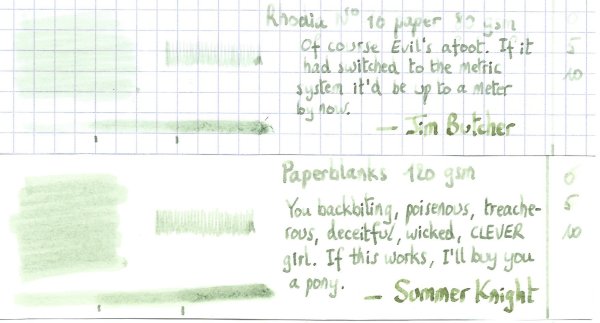 Rhodia N° 16 paper 80 gsm
Of course Evil's afoot. If it
had switched to the metric
system it'd be up to a meter
by now.
— Jim Butcher
0
5
10
Paperblanks 120 gsm
You backbiting, poisenous, treache-
rous, deceitful, wicked, CLEVER
girl. If this works, I'll buy you
a pony.
— Summer Knight
0
5
10